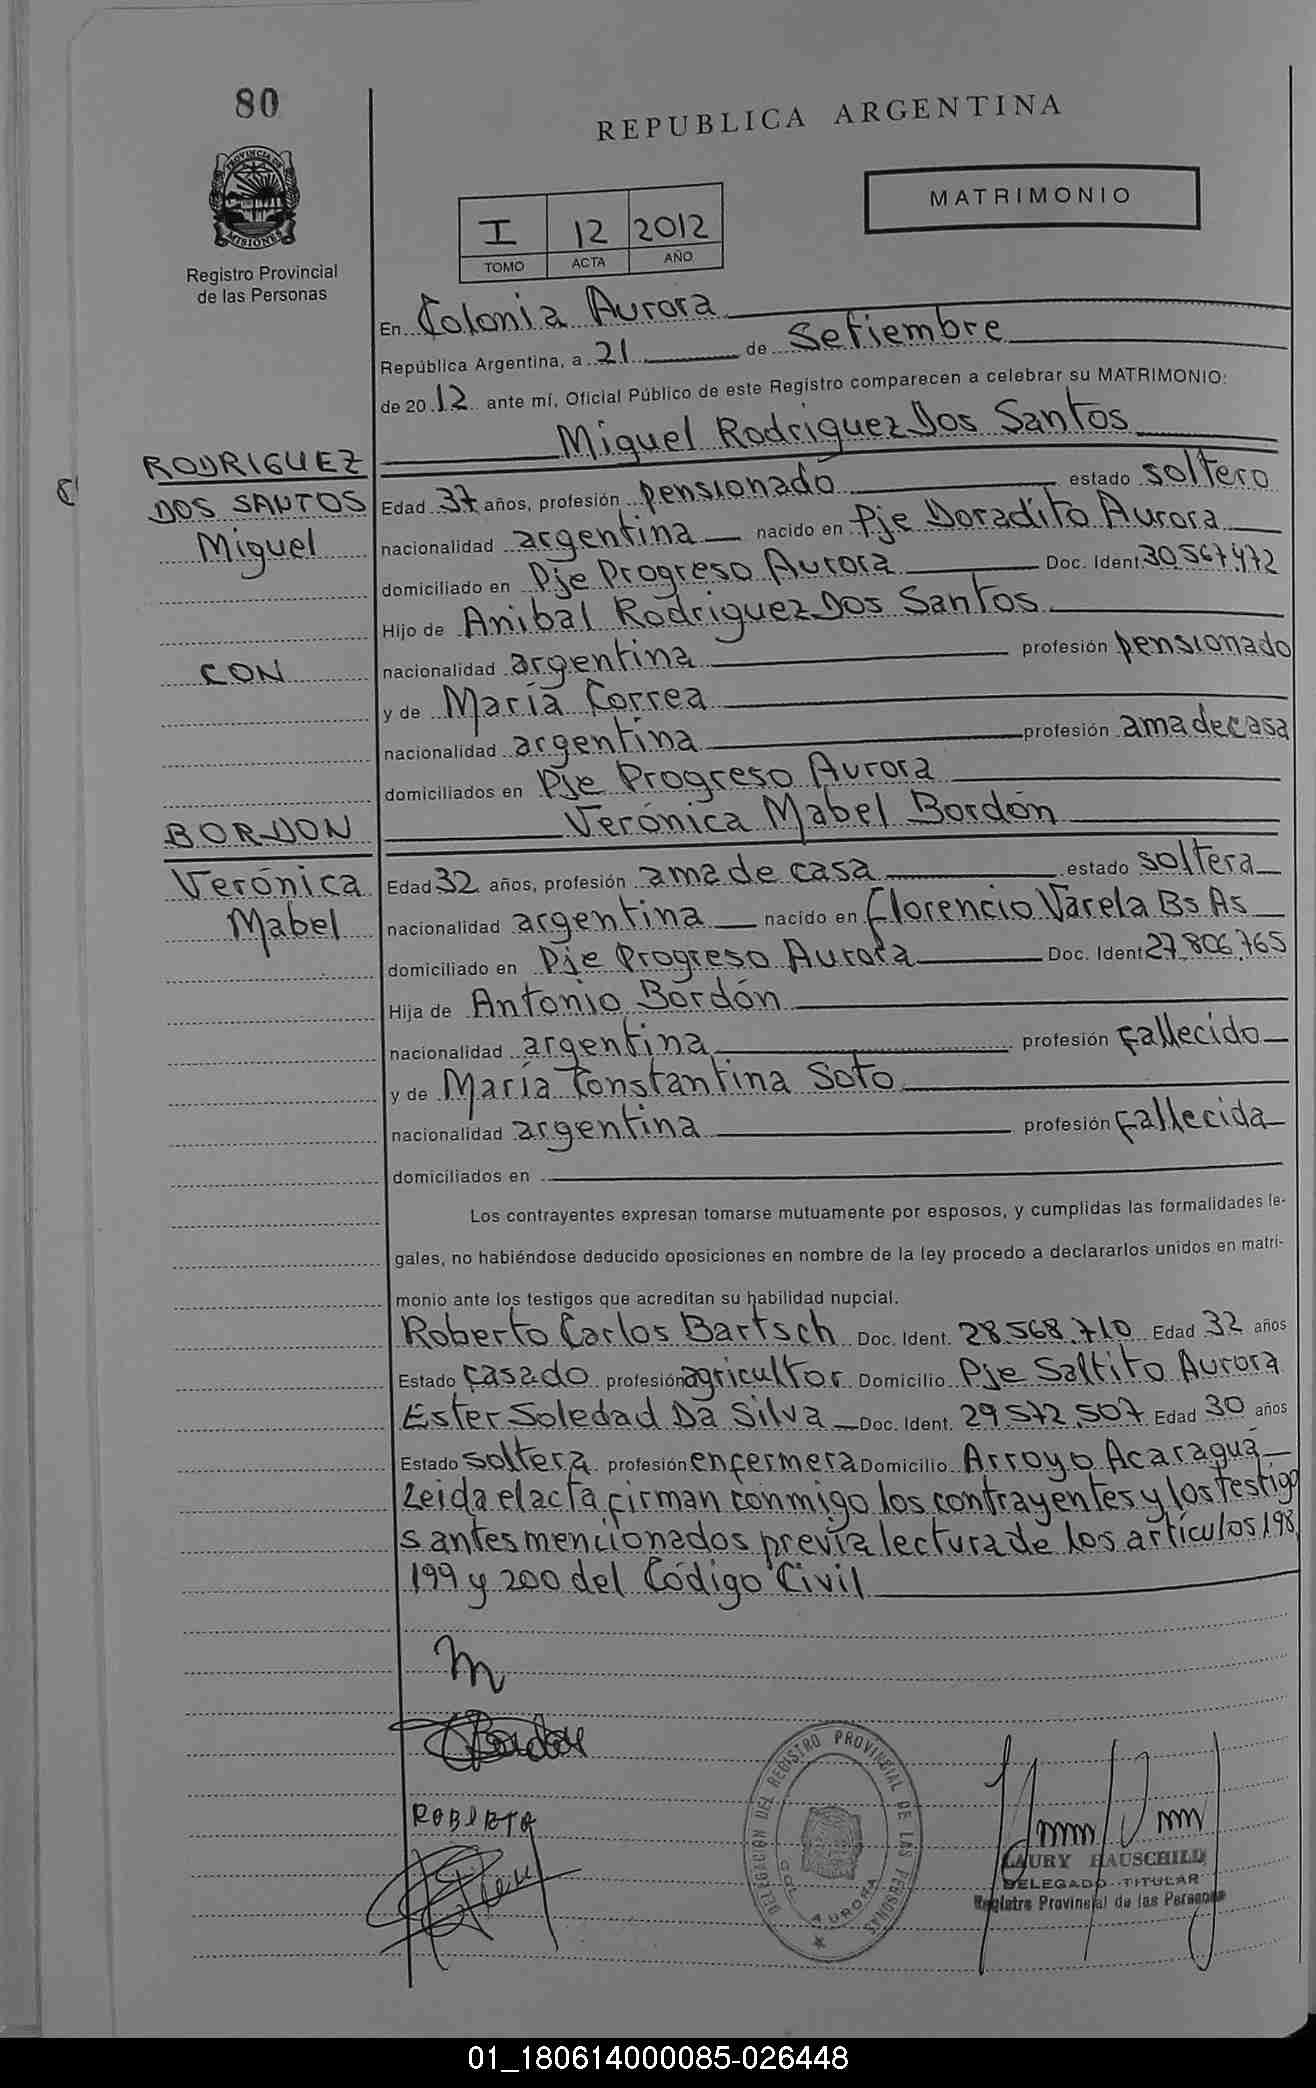 80
REPUBLICA ARGENTINA
PROVINCIA DE
MISIONES
Registro Provincial
de las Personas
MATRIMONIO
I 12 2012
TOMO ACTA AÑO
En Colonia Aurora
República Argentina, a 21 de Setiembre
de 20 12 ante mí, Oficial Público de este Registro comparecen a celebrar su MATRIMONIO:
Miguel Rodriguez Dos Santos
RODRIGUEZ
DOS SANTOS
Miguel
CON
BORDON
Verónica
Mabel
Edad 37 años, profesión pensionado estado soltero
nacionalidad argentina nacido en Pje Doradito Aurora
domiciliado en Pje Progreso Aurora Doc. Ident. 30.567.472
Hijo de Anibal Rodriguez Dos Santos
nacionalidad argentina profesión pensionado
y de María Correa
nacionalidad argentina profesión ama de casa
domiciliados en Pje Progreso Aurora
Verónica Mabel Bordón
Edad 32 años, profesión ama de casa estado soltera
nacionalidad argentina nacido en Florencio Varela Bs As
domiciliado en Pje Progreso Aurora Doc. Ident 27.806.765
Hija de Antonio Bordón
nacionalidad argentina profesión fallecido
y de María Constantina Soto
nacionalidad argentina profesión fallecida
domiciliados en
Los contrayentes expresan tomarse mutuamente por esposos, y cumplidas las formalidades le-
gales, no habiéndose deducido oposiciones en nombre de la ley procedo a declararlos unidos en matri-
monio ante los testigos que acreditan su habilidad nupcial.
Roberto Carlos Bartsch Doc. Ident. 28.568.710 Edad 32 años
Estado casado profesión agricultor Domicilio Pje Saltito Aurora
Ester Soledad Da Silva Doc. Ident. 29.572.507 Edad 30 años
Estado soltera profesión enfermera Domicilio Arroyo Acaraguá
Leida el acta firman conmigo los contrayentes y los testigo
s antes mencionados previa lectura de los artículos 198,
199 y 200 del Código Civil
m
Bordon
ROBERTO
DELEGACION DEL REGISTRO PROVINCIAL DE LAS PERSONAS
COL. AURORA
LAURY HAUSCHILD
DELEGADO TITULAR
Registro Provincial de las Personas
01_180614000085-026448